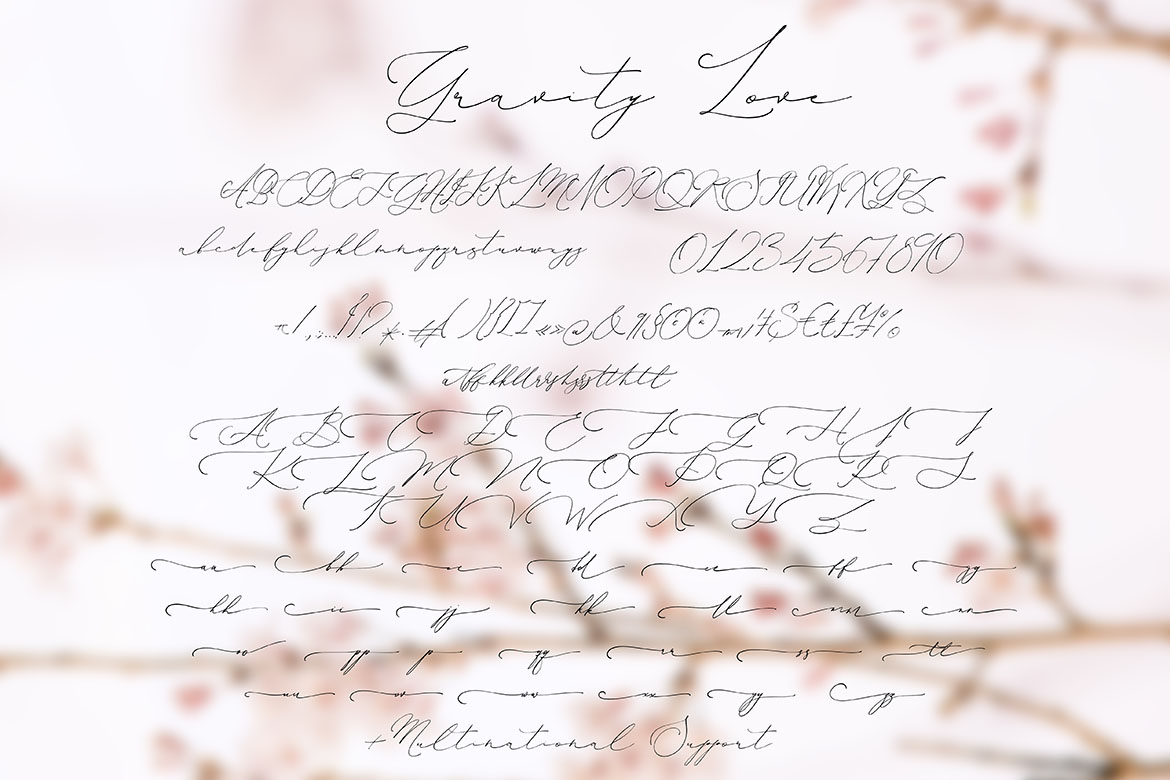 Gravity Love
ABCDEFGHIJKLMNOPQRSTUVWXYZ
abcdefghijklmnopqrstuvwxyz 0123456789
A B C D E F G H I J
K L M N O P Q R S
T U V W X Y Z
aa bb cc dd ee ff gg
hh ii jj kk ll mm nn
oo pp p qq rr ss tt
uu vv ww xx yy zz
+Multinational Support